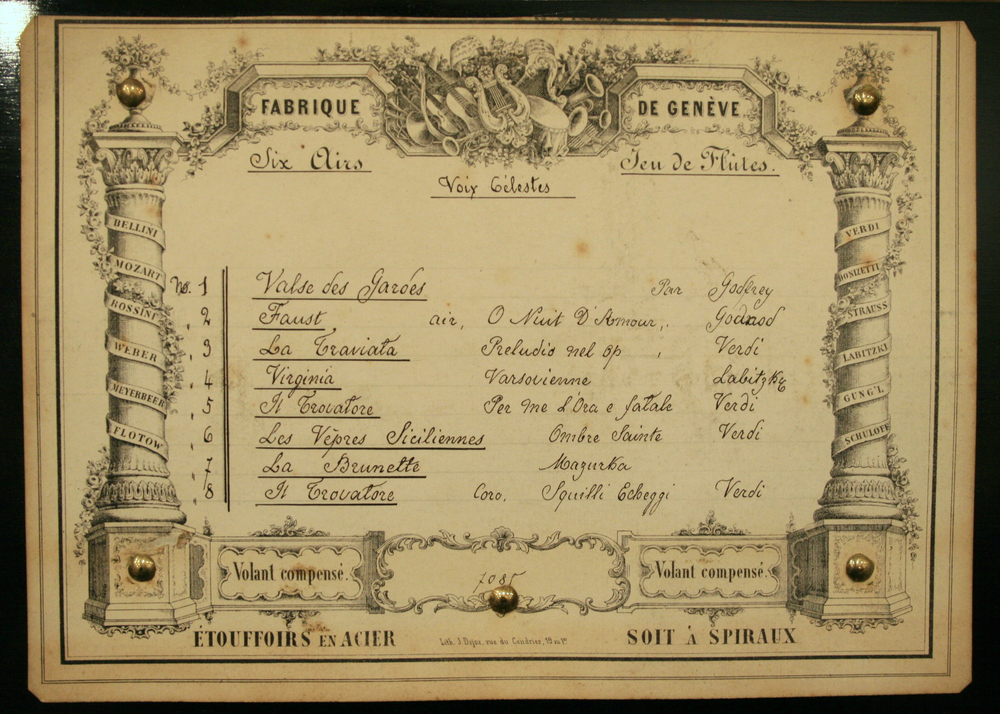 FABRIQUE DE GENÈVE
Six Airs Jeu de Flûtes.
Voix Célestes
BELLINI
MOZART
ROSSINI
WEBER
MEYERBEER
FLOTOW
VERDI
DONIZETTI
STRAUSS
LABITZKI
GUNG'L
SCHULOFF
No. 1 Valse des Gardes Par Godfrey
" 2 Faust air, O Nuit D'Amour, Godnod
" 3 La Traviata Preludio nel op " Verdi
" 4 Virginia Varsovienne Labitzky
" 5 Il Trovatore Per me l'Ora e fatale Verdi
" 6 Les Vêpres Siciliennes Ombre Sainte Verdi
" 7 La Brunette Mazurka
" 8 Il Trovatore Coro, Squilli Echeggi Verdi
Volant compensé. 7085 Volant compensé.
ÉTOUFFOIRS EN ACIER SOIT À SPIRAUX
Lith. J. Dejoz, rue du Cendrier, 19 au 1er